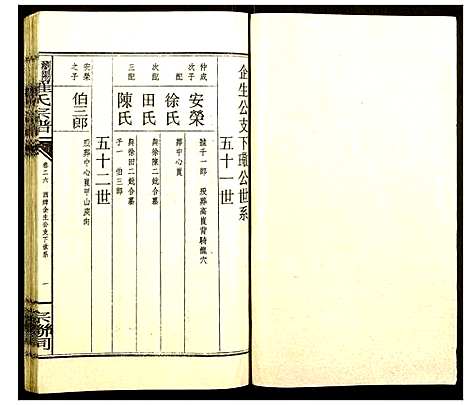 企生公支下璥公世系
五十一世
仲成次子
安榮
號千一郎 歿葬高崀背騎龍穴
配
徐氏
葬中心崀
次配
田氏
與徐陳二妣合墓
三配
陳氏
與徐田二妣合墓
子一 伯三郎
五十二世
安榮之子
伯三郎
歿葬中心崀甲山庚向
崔氏宗譜
卷二六
西錦企生公支下世系
一
宗聯司